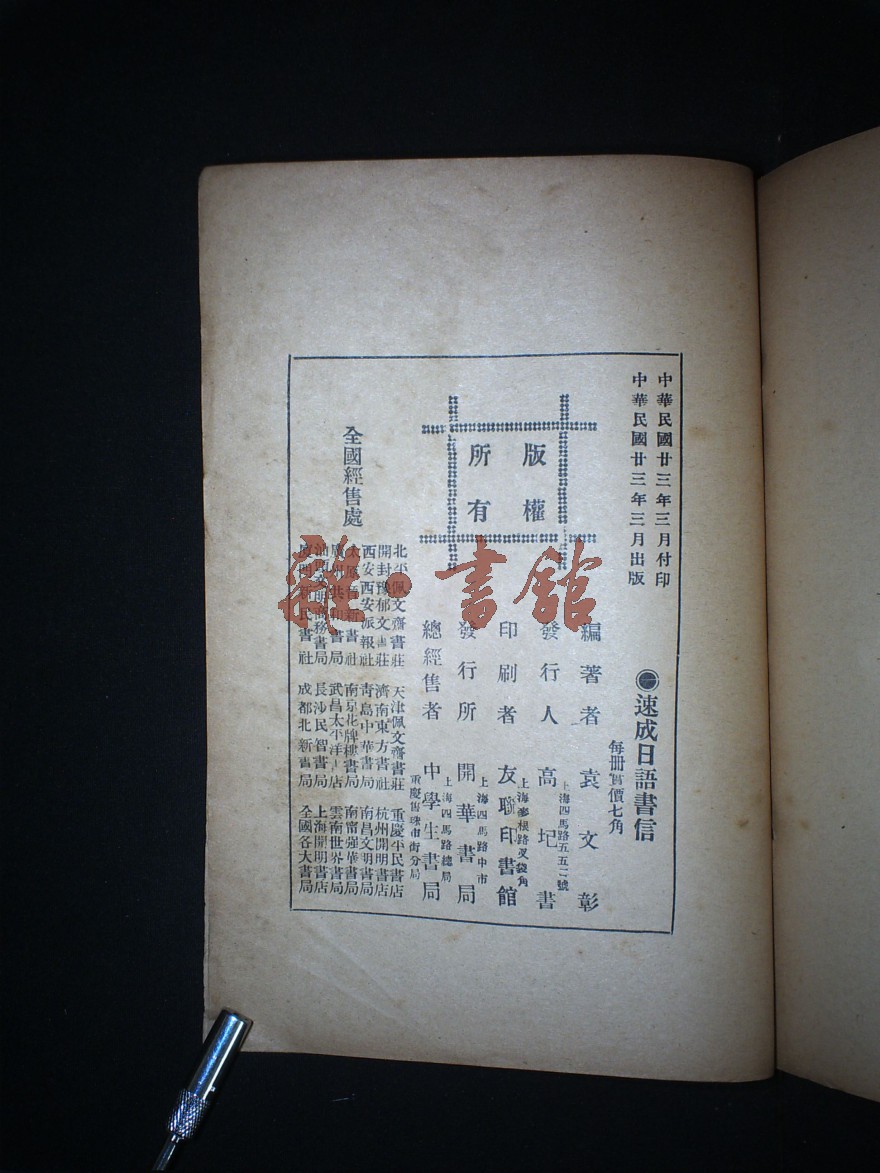 中華民國廿三年三月付印
中華民國廿三年三月出版
速成日語書信
每冊實價七角
版權
所有
編著者 袁文彰
上海四馬路五五二號
發行人 高圮書
上海麥根路叉袋角
印刷者 友聯印書館
上海四馬路中市
發行所 開華書局
上海四馬路總局
總經售者 中學生書局
重慶售珠市街分局
全國經售處
北平佩文齋書莊 天津佩文齋書莊 重慶平民書店
開封豫郁文書莊 濟南東方書社 杭州開明書店
西安西安派報社 青島中華書局 南昌文明書局
新書社 南京花牌樓書局 南甯強華書局
廣州共和書局 武昌太平洋書店 雲南世界書局
汕頭文明商務書局 長沙民智書局 上海開明書店
廈門新民書社 成都北新書局 全國各大書局
雜·書館